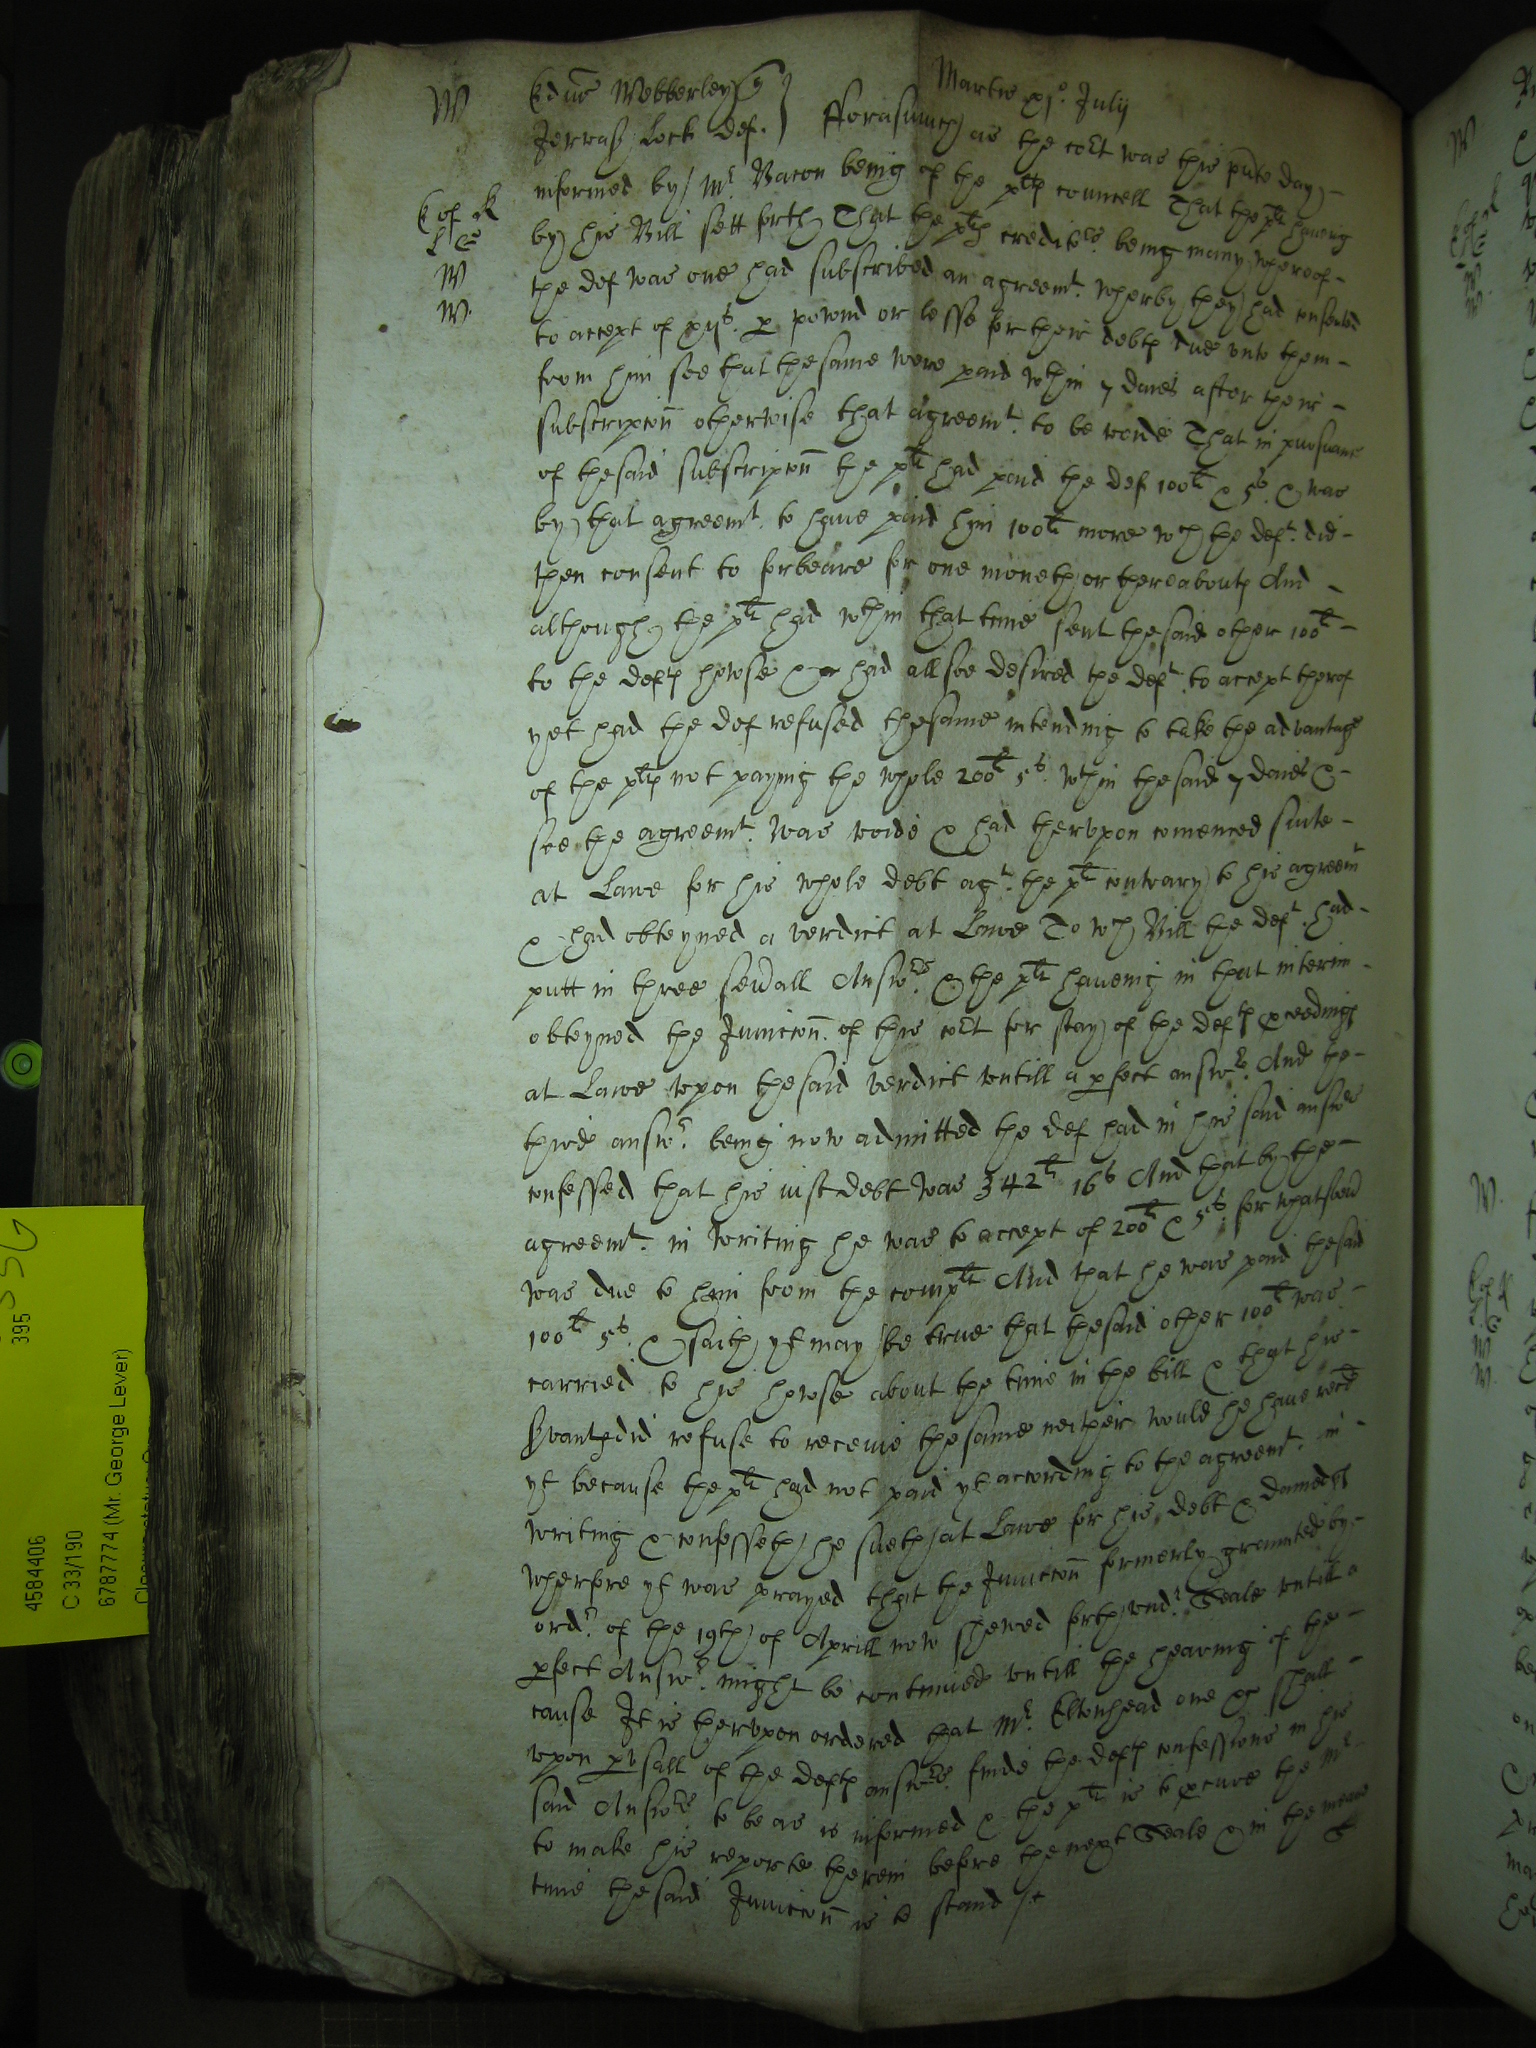 Martis xj°. July
W
Edūs Mobberley q
Jervasy Lock def. } Fforasmuch as the cort was this pñte day
K of R
L Ce
W
W.
informed by Mr. Bacon being of the pltes councell That the plt haveing
by his Bill sett forth That the pltes creditors. being many whereof
the def was one had subscribed an agreemt. wherby they had consented
to accept of xijs. p pownd or lesse for their debtes due unto them
from him soe that the same were paid wthin 7 daies after their
subscripcoñ otherwise that agreemt. to be voide That in pursuance
of the said subscripcoñ the plt had paid the def 100li & 5s. & was
by that agreemt. to have paid him 100li more wch the deft. did
then consent to forbeare for one moneth or thereaboutes And
although the plt had wthin that time sent the said other 100li
to the deftes howse & had allsoe desired the deft. to accept therof
yet had the def refused the same intending to take the advantage
of the pltes not paying the whole 200li 5s. wthin the said 7 daies &
soe the agreemt. was voide & had therupon comenced suite
at Lawe for his whole debt agt. the plt contrary to his agreemt
& had obteyned a verdict at Lawe To wch Bill the deft. had
putt in three sevall Answrs. & the plt haveing in that interim
obteyned the Juniccoñ. of this cort for stay of the deftes pceedinges
at Lawe upon the said verdict untill a pfect answr. And the
third answr. being now admitted the def had in his said answer
confessed that his iust debt was 342li 16s And that by the
agreemt. in writing he was to accept of 200li & 5s. for whatsoevr
was due to him from the complt And that he was paid the said
100li 5s. & saith yt may be true that the said other 100li was
carried to his howse about the time in the bill & that his
Svantes did refuse to receive the same neither would he have recd
yt because the plt had not paid yt according to the agreemt. in
writing & confesseth he sueth at Lawe for his debt & damages
wherfore yt was prayed that the Juniccoñ formerly graunted by
ordr. of the 19th of Aprill now shewed forth undr. Seale untill a
pfect Answr. might be continued untill the hearing of the
cause It is therupon ordered that Mr. Eltonhead one &c shall
upon pusall of the deftes answrs. finde the deftes confessions in his
said Answrs to be as is informed & the plt is to pcure the Mr
to make his reporte therein before the next Seale & in the meane
time the said Juniccoñ is to stand
395
4584406
C 33/190
6787774 (Mr. George Lever)